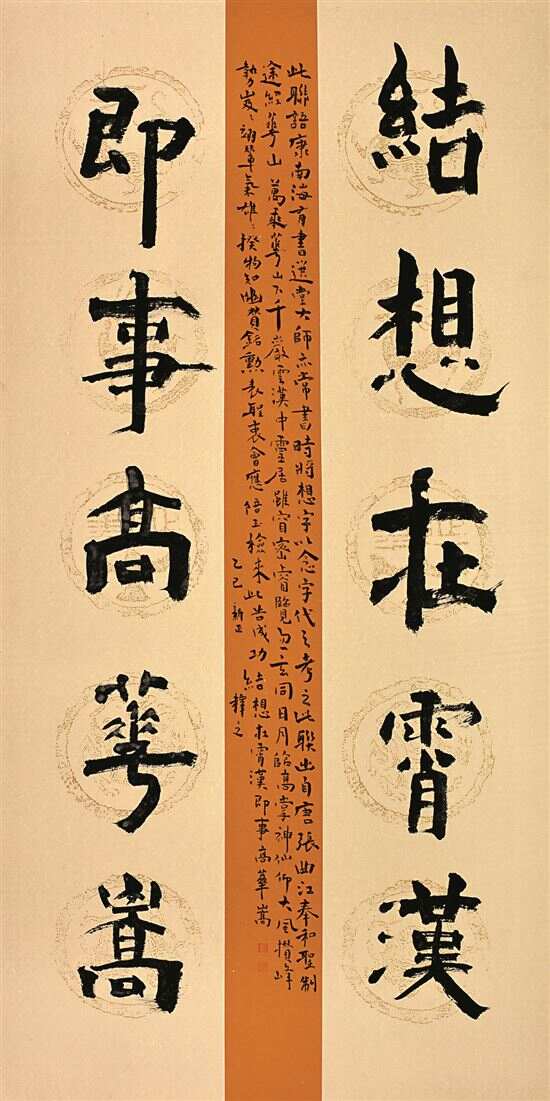 結想在霄漢
此聯語康南海有書選堂大師亦常書時將想字以念字代之考之此聯出自唐張曲江奉和聖制
途經華山 萬乘華山下千巖雲漢中靈居雖窅密睿覽忽玄同日月臨高掌神仙仰大風攢峰
勢岌〻翊輦氣雄〻揆物知幽贊銘勳表聖衷會應陪玉檢來此告成功 結想在霄漢即事高華嵩
乙巳 新正 釋之
即事高華嵩